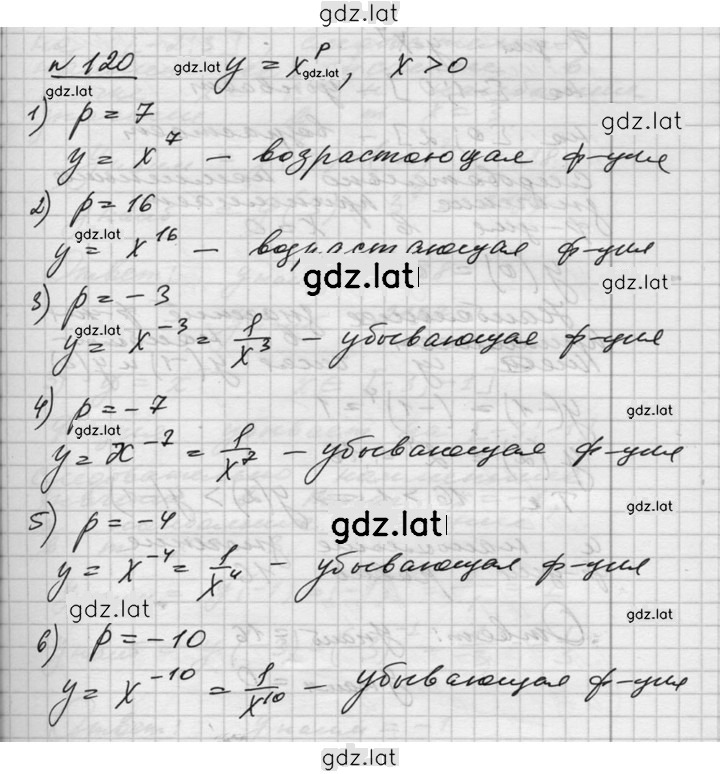 gdz.lat
№ 120 gdz.lat y = x^p gdz.lat, x > 0
gdz.lat
1) p = 7 gdz.lat
y = x^7 – возрастающая ф-ция
2) p = 16
gdz.lat gdz.lat
y = x^16 – возрастающая ф-ция
gdz.lat gdz.lat
3) p = – 3
gdz.lat
y = x^–3 = 1/x^3 – убывающая ф-ция
4) p = – 7 gdz.lat
gdz.lat
y = x^–7 = 1/x^7 – убывающая ф-ция
5) p = – 4 gdz.lat gdz.lat
y = x^–4 = 1/x^4 – убывающая ф-ция
gdz.lat gdz.lat
6) p = – 10
y = x^–10 = 1/x^10 – убывающая ф-ция
gdz.lat
gdz.lat